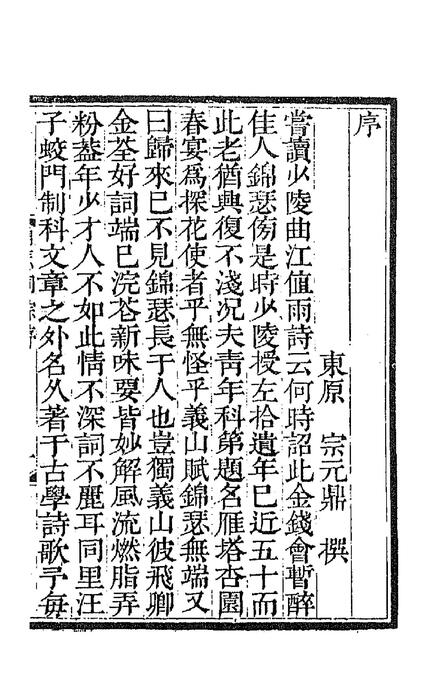 序
東原 宗元鼎 撰
嘗讀少陵曲江值雨詩云何時詔此金錢會暫醉
佳人錦瑟傍是時少陵授左拾遺年巳近五十而
此老猶興復不淺况夫靑年科第題名雁塔杏園
春宴爲探花使者乎無怪乎義山賦錦瑟無端又
曰歸來巳不見錦瑟長于人也豈獨義山彼飛卿
金荃好詞端巳浣花新咏要皆妙解風流燃脂弄
粉葢年少才人不如此情不深詞不麗耳同里汪
子蛟門制科文章之外名久著于古學詩歌予每